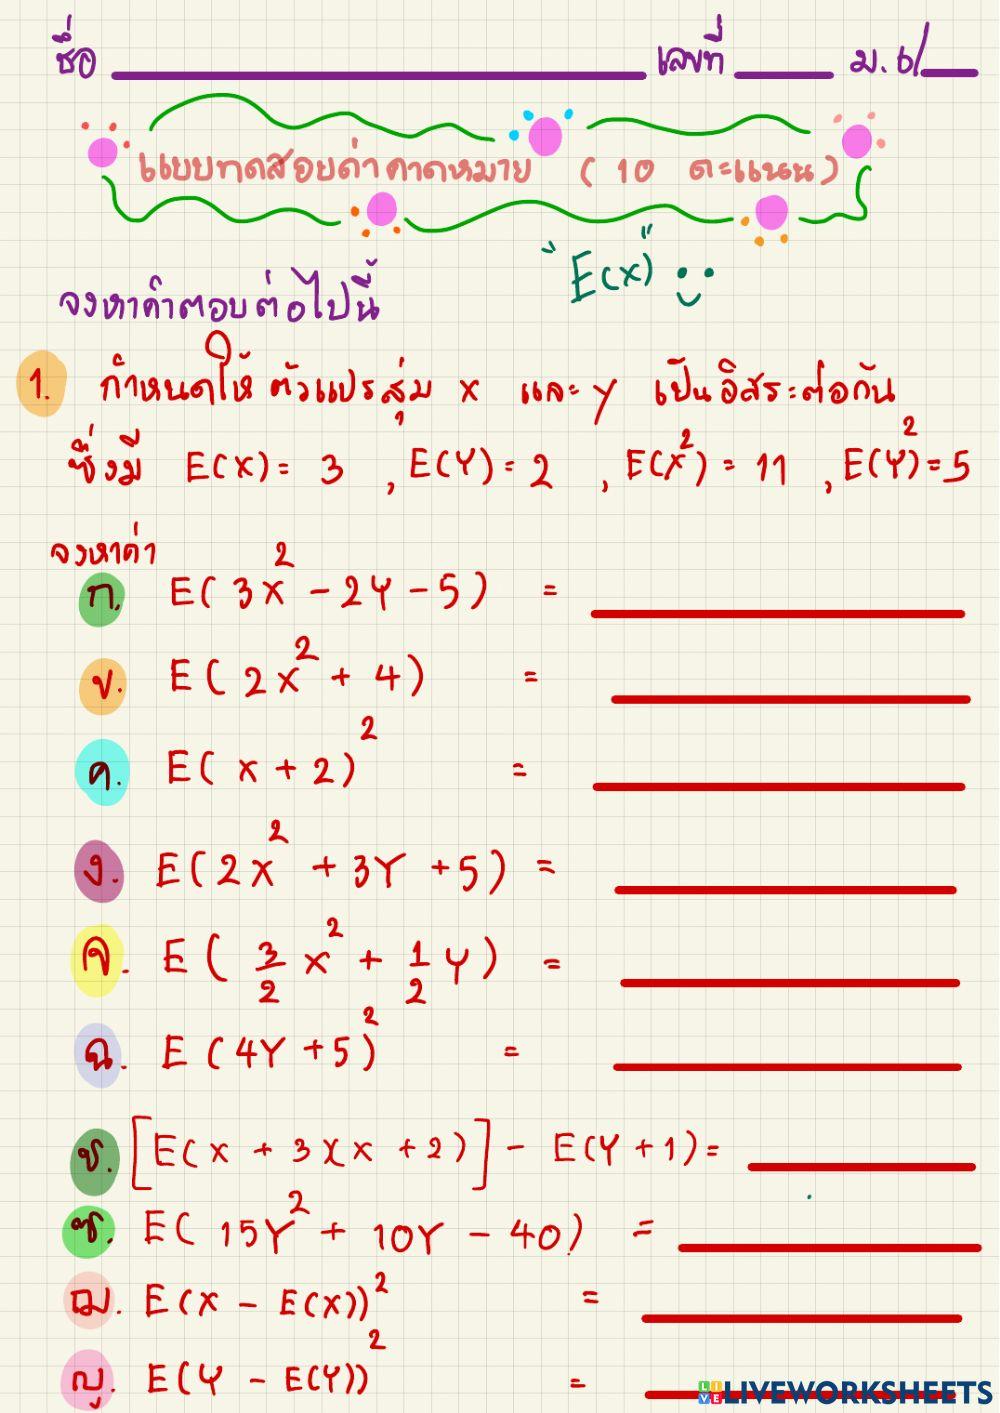 ชื่อ เลขที่ ม.6/
แบบทดสอบค่าคาดหมาย (10 คะแนน)
"E(x)"
จงหาคำตอบต่อไปนี้
1. กำหนดให้ ตัวแปรสุ่ม x และ y เป็นอิสระต่อกัน
ซึ่งมี E(x) = 3 , E(Y) = 2 , E(x²) = 11 , E(Y)² = 5
จงหาค่า
ก. E(3x² - 2Y - 5) =
ข. E(2x² + 4) =
ค. E(x + 2)² =
ง. E(2x² + 3Y + 5) =
จ. E(3/2 x² + 1/2 y) =
ฉ. E(4Y + 5)² =
ช. [E(x + 3)(x + 2)] - E(Y + 1) =
ซ. E(15Y² + 10Y - 40) =
ฌ. E(x - E(x))² =
ญ. E(Y - E(Y))² =
LIVEWORKSHEETS